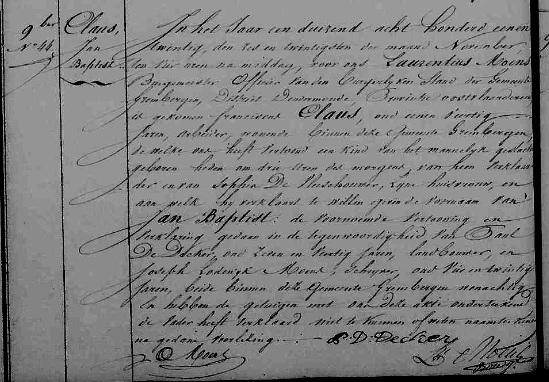 9ber
N° 44
Claus,
Jan
Baptist
In het Jaar een duizend acht honderd eenen
twintig, den zes en twintigsten der maand November,
ten vier uren na middag, voor ons Laurentius Moens
Burgemeester Officier van den Burgerlyken Stand der Gemeente
Grembergen, District Dendermonde, Provintie oostvlaanderen
is gekomen franciscus Claus, oud eenen veertig
Jaren, arbeider, wonende binnen deze Gemeente Grembergen
de welke ons heeft vertoond een kind van het mannelyk geslacht
geboren heden om drie uren des morgens van hem verklaar-
der en van Sophia De huisvrouw, en
aan welk hy verklaart te willen geven de voornaam van
Jan Baptist: de voornoemde vertooning en
verklaring gedaan in de tegenwoordigheid van Paul
De Decker, oud zeven en veertig Jaren, landbouwer, en
Joseph Lodewyk Moens, schryver, oud vier en twintig
Jaren, beide binnen deze Gemeente Grembergen woonachtig
En hebben de getuigen met ons deze akte onderteekend
de vader heeft verklaard niet te kunnen naamteekenen
na gedane voorlezing.
P D Decker
Moens